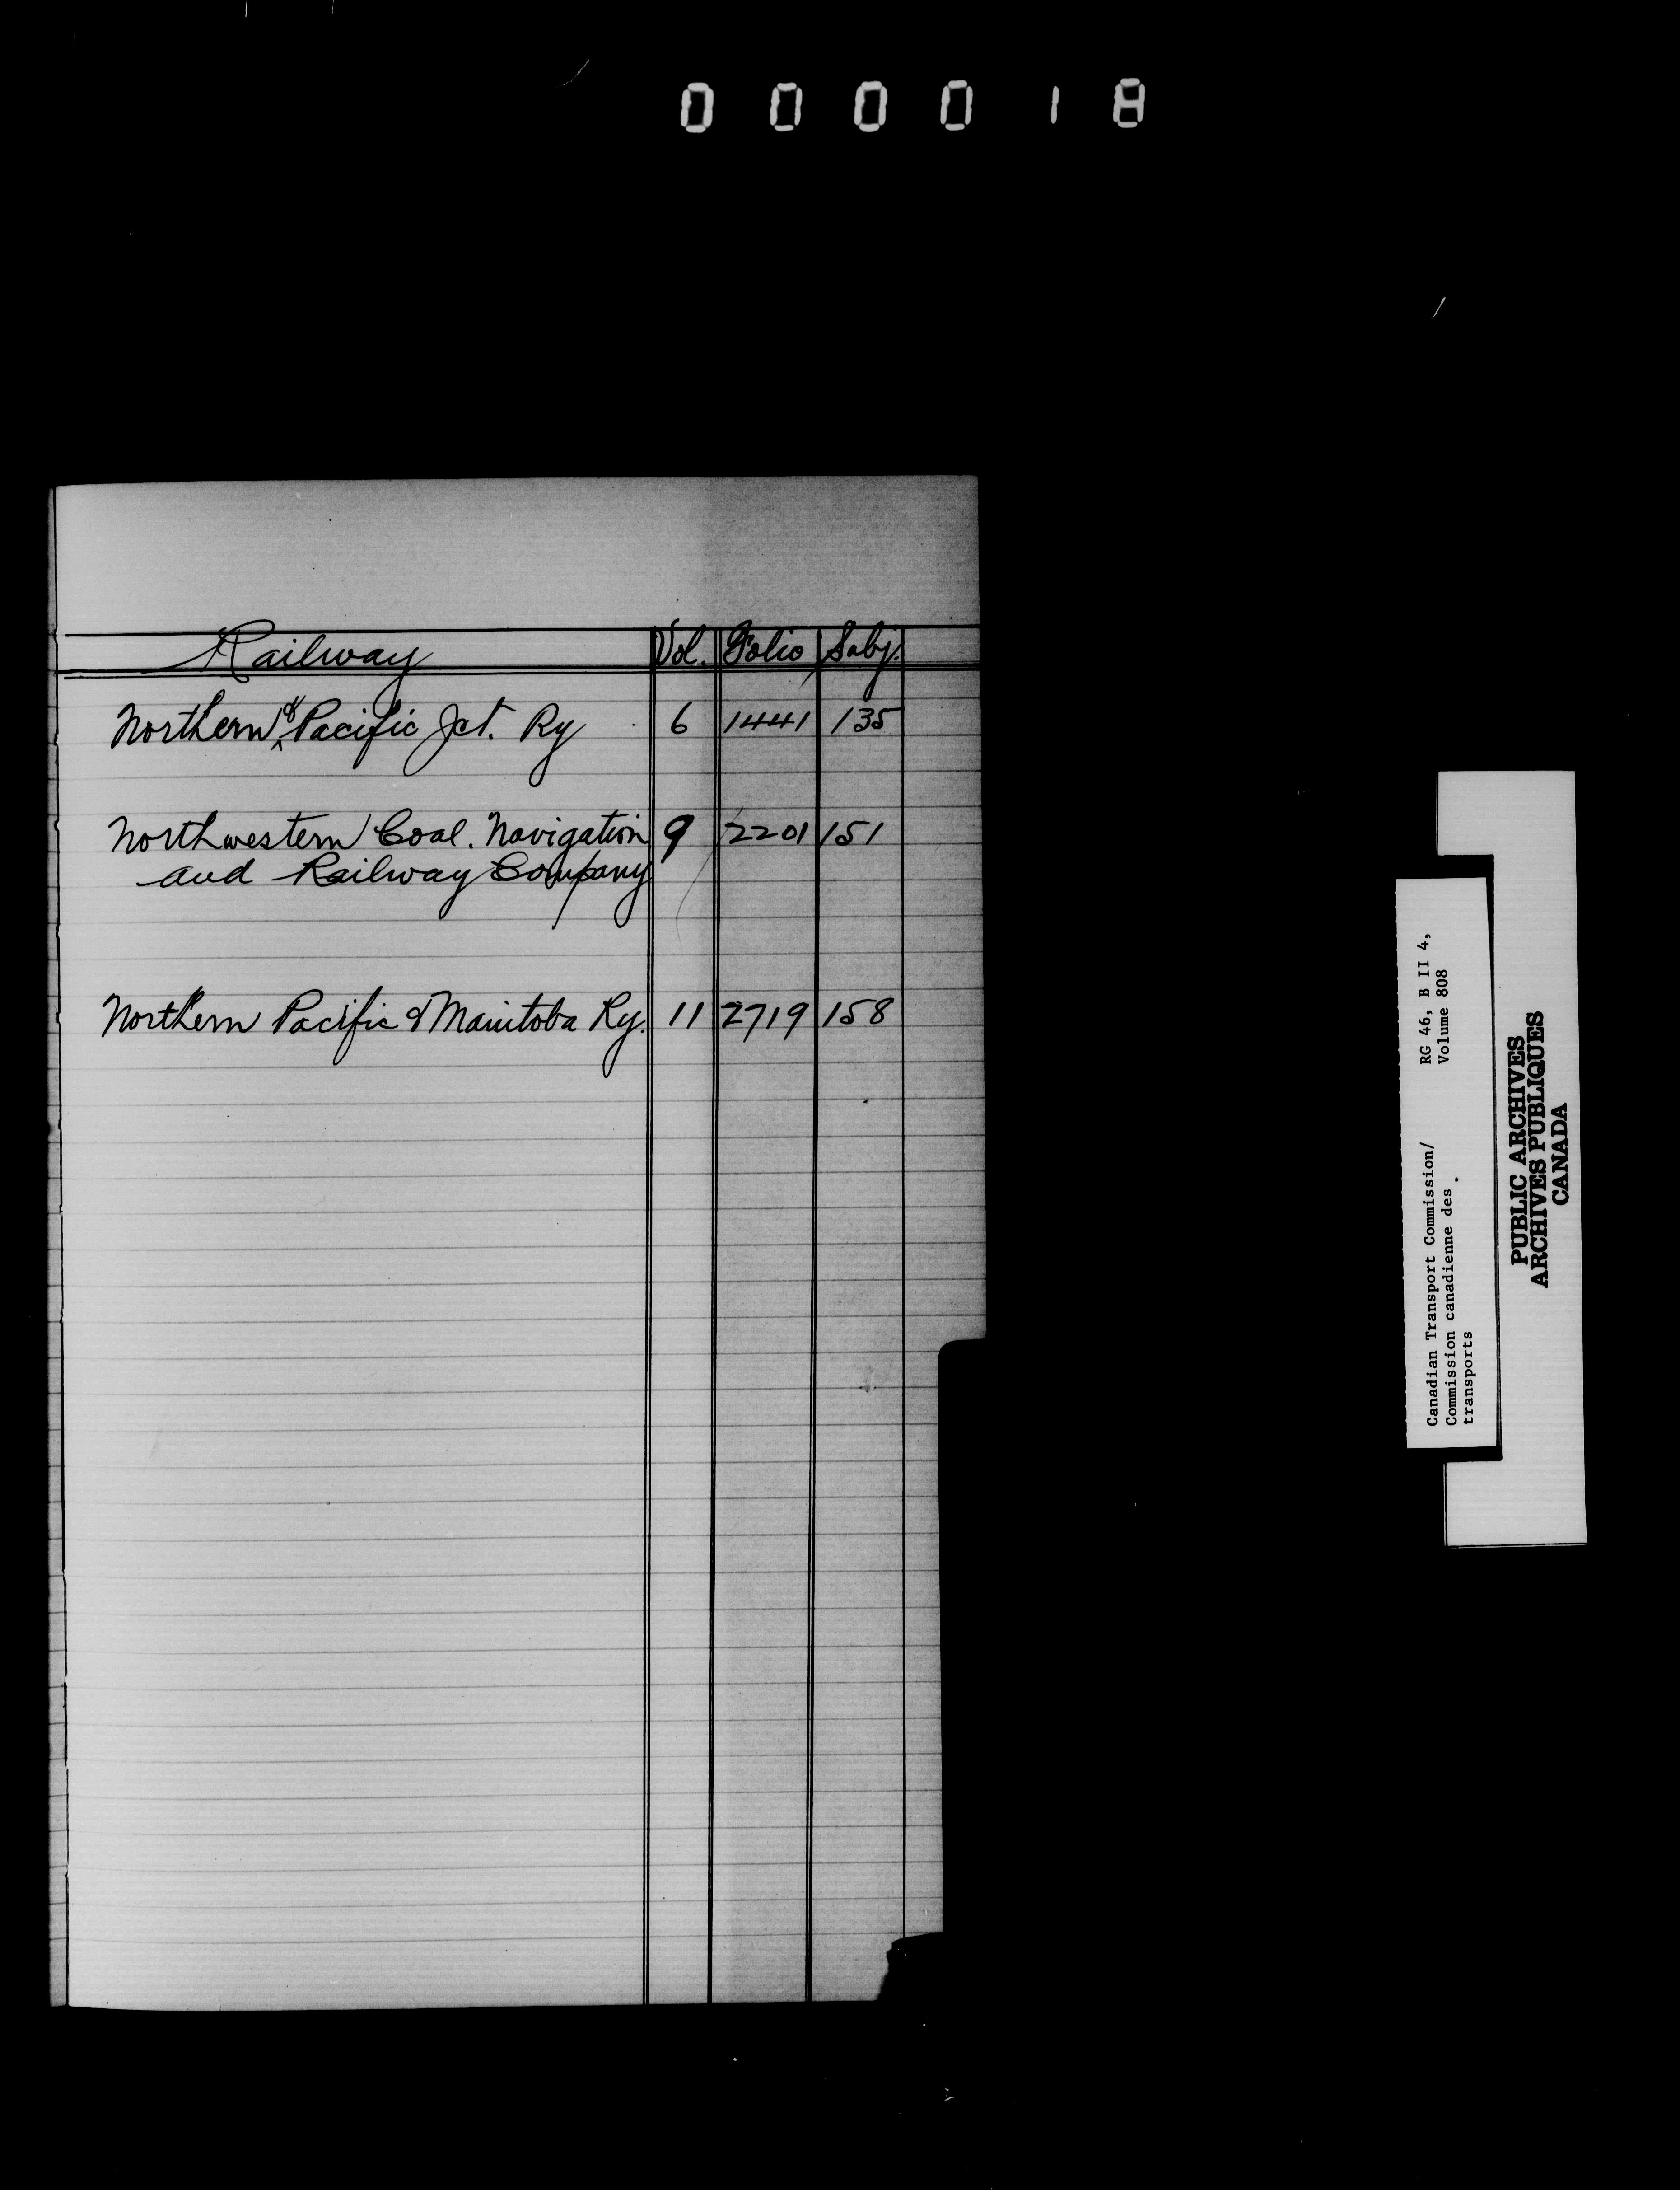 000018
Railway Vol. Folio Subj.
Northern & Pacific Jct. Ry 6 1441 135
Northwestern Coal. Navigation 9 2201 151
and Railway Company
Northern Pacific & Manitoba Ry. 11 2719 158
Canadian Transport Commission/ RG 46, B II 4,
Commission canadienne des Volume 808
transports
PUBLIC ARCHIVES
ARCHIVES PUBLIQUES
CANADA